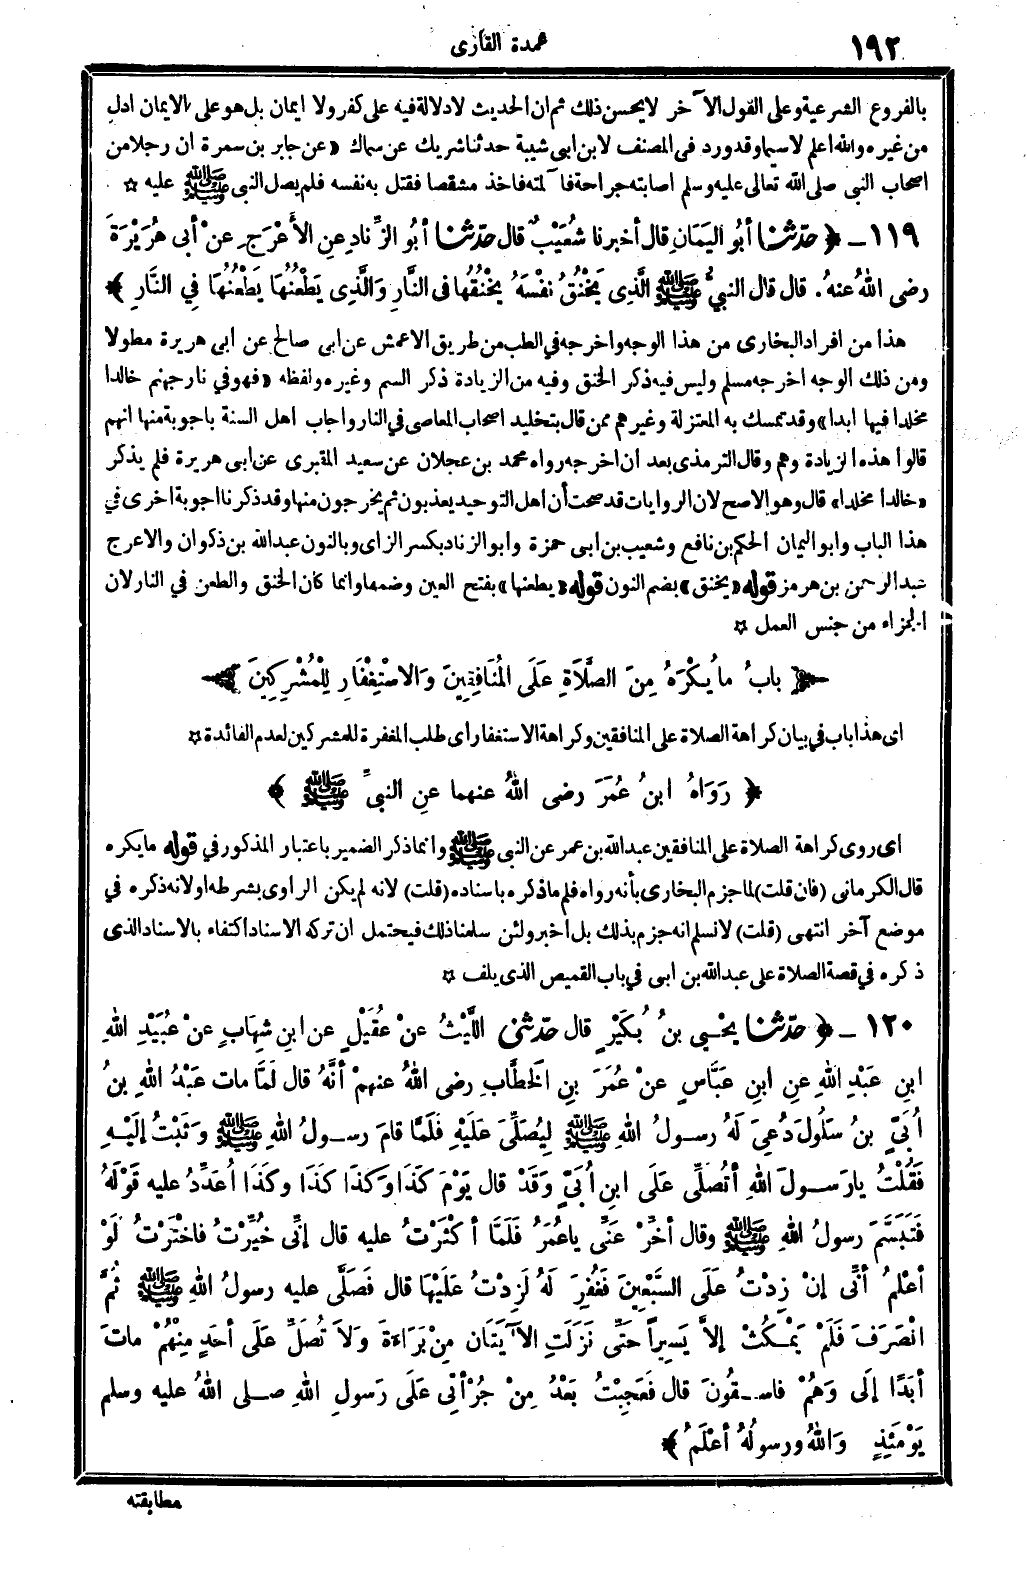 ١٩٢
عمدة القارى
بالفروع الشرعية وعلى القول الآخر لا يحسن ذلك ثم ان الحديث لا دلالة فيه على كفر ولا ايمان بل هو على الايمان ادل
من غيره والله اعلم لاسيما وقد ورد فى المصنف لابن ابى شيبة حدثنا شريك عن سماك «عن جابر بن سمرة ان رجلا من
اصحاب النبى صلى الله تعالى عليه وسلم اصابته جراحة فآلمته فاخذ مشقصا فقتل به نفسه فلم يصل النبى ﷺ عليه ☆
١١٩ - ﴿ حَدَّثَنَا أبُو اليَمَانِ قال أخبرنا شُعَيْبٌ قال حَدَّثَنَا أبُو الزِّنادِ عنِ الأعْرَجِ عنْ أبى هُرَيْرَةَ
رضى اللهُ عنهُ . قال قال النبىُّ ﷺ الَّذِى يَخْنُقُ نفْسَهُ يخْنُقُها فى النَّارِ وَالَّذِى يَطْعُنُهَا يَطْعُنُهَا فِي النَّارِ ﴾
هذا من افراد البخارى من هذا الوجه واخرجه في الطب من طريق الاعمش عن ابى صالح عن ابى هريرة مطولا
ومن ذلك الوجه اخرجه مسلم وليس فيه ذكر الخنق وفيه من الزيادة ذكر السم وغيره ولفظه «فهو في نار جهنم خالدا
مخلدا فيها ابدا» وقد تمسك به المعتزلة وغيرهم ممن قال بتخليد اصحاب المعاصى في النار واجاب اهل السنة باجوبة منها انهم
قالوا هذه الزيادة وهم وقال الترمذى بعد ان اخرجه رواه محمد بن عجلان عن سعيد المقبرى عن ابى هريرة فلم يذكر
«خالدا مخلدا» قال وهو الاصح لان الروايات قد صحت أن اهل التوحيد يعذبون ثم يخرجون منها وقد ذكرنا اجوبة اخرى في
هذا الباب وابو اليمان الحكم بن نافع وشعيب بن ابى حمزة وابو الزناد بكسر الزاى وبالنون عبد الله بن ذكوان والاعرج
عبد الرحمن بن هرمز قوله «يخنق» بضم النون قوله «يطعنها» بفتح العين وضمها وانما كان الخنق والطعن في النار لان
الجزاء من جنس العمل ☆
﴿ بابُ ما يُكْرَهُ مِنَ الصَّلَاةِ عَلَى المُنَافِقِينَ وَالاسْتِغْفَارِ لِلْمُشْرِكِينَ ﴾
اى هذا باب في بيان كراهة الصلاة على المنافقين وكراهة الاستغفار أى طلب المغفرة للمشركين لعدم الفائدة ☆
﴿ رَوَاهُ ابنُ عُمَرَ رضى اللهُ عنهما عنِ النبىِّ ﷺ ﴾
اى روى كراهة الصلاة على المنافقين عبد الله بن عمر عن النبى ﷺ وانما ذكر الضمير باعتبار المذكور في قوله ما يكره
قال الكرمانى (فان قلت) لما جزم البخارى بأنه رواه فلم ما ذكره باسناده (قلت) لانه لم يكن الراوى بشرطه او لانه ذكره في
موضع آخر انتهى (قلت) لا نسلم انه جزم بذلك بل اخبر ولئن سلمنا ذلك فيحتمل ان تركه الاسناد اكتفاء بالاسناد الذى
ذكره في قصة الصلاة على عبد الله بن ابى في باب القميص الذى يلف ☆
١٢٠ - ﴿ حَدَّثَنَا يحْيى بنُ بُكَيْرٍ قال حَدَّثَنى اللَّيْثُ عنْ عُقَيْلٍ عنِ ابنِ شِهَابٍ عنْ عُبَيْدِ اللهِ
ابنِ عَبْدِ اللهِ عنِ ابنِ عَبَّاسٍ عنْ عُمَرَ بنِ الخَطَّابِ رضى اللهُ عنهمْ أنَّهُ قال لَمَّا مات عَبْدُ اللهِ بنُ
أُبَىٍّ بنُ سَلُولَ دُعِىَ لَهُ رسولُ اللهِ ﷺ لِيُصَلِّىَ عَلَيْهِ فَلَمَّا قامَ رسولُ اللهِ ﷺ وَثَبْتُ إلَيْهِ
فَقُلْتُ يارَسولَ اللهِ أتُصَلِّى عَلَى ابنِ أُبَىٍّ وَقَدْ قال يَوْمَ كَذَا وَكَذَا كَذَا وكَذَا أُعَدِّدُ عليه قَوْلَهُ
فَتَبَسَّمَ رسولُ اللهِ ﷺ وقال أخِّرْ عَنِّى ياعُمَرُ فَلَمَّا أكْثَرْتُ عليه قال إنِّى خُيِّرْتُ فاخْتَرْتُ لَوْ
أعْلمُ أنِّى إنْ زِدْتُ عَلَى السَّبْعِينَ فَغُفِرَ لَهُ لَزِدْتُ عَلَيْهَا قال فَصَلَّى عليه رسولُ اللهِ ﷺ ثُمَّ
انْصَرَفَ فَلَمْ يَمْكُثْ إلاَّ يَسِيراً حَتَّى نَزَلَتِ الآيَتَانِ مِنْ بَرَاءَةَ وَلاَ تُصَلِّ عَلَى أحَدٍ مِنْهُمْ ماتَ
أبَدًا إلَى وَهُمْ فاسِقُونَ قال فَعَجِبْتُ بَعْدُ مِنْ جُرْأتِى عَلَى رَسولِ اللهِ صلى اللهُ عليه وسلم
يَوْمَئِذٍ وَاللهُ ورسولُهُ أعْلَمُ ﴾
مطابقته